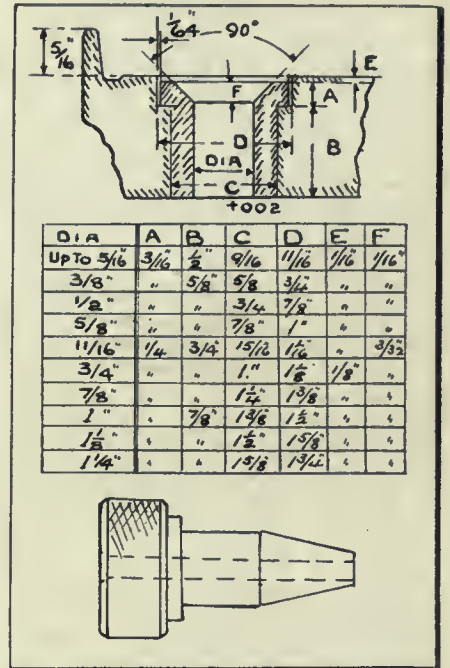 1/64" 90°
5/16"
E
F A
D B
DIA
C
+002
DIA A B C D E F
Up To 5/16" 3/16" 1/2" 9/16 11/16" 1/16" 1/16"
3/8" " 5/8" 5/8 3/4" " "
1/2" " " 3/4 7/8" " "
5/8" " " 7/8" 1" " "
11/16" 1/4 3/4" 15/16 1 1/16" " 3/32"
3/4" " " 1." 1 1/8" 1/8" "
7/8" " " 1 1/4" 1 3/8" " "
1" " 7/8" 1 3/8 1 1/2" " "
1 1/8" " " 1 1/2" 1 5/8" " "
1 1/4" " " 1 5/8 1 3/4" " "